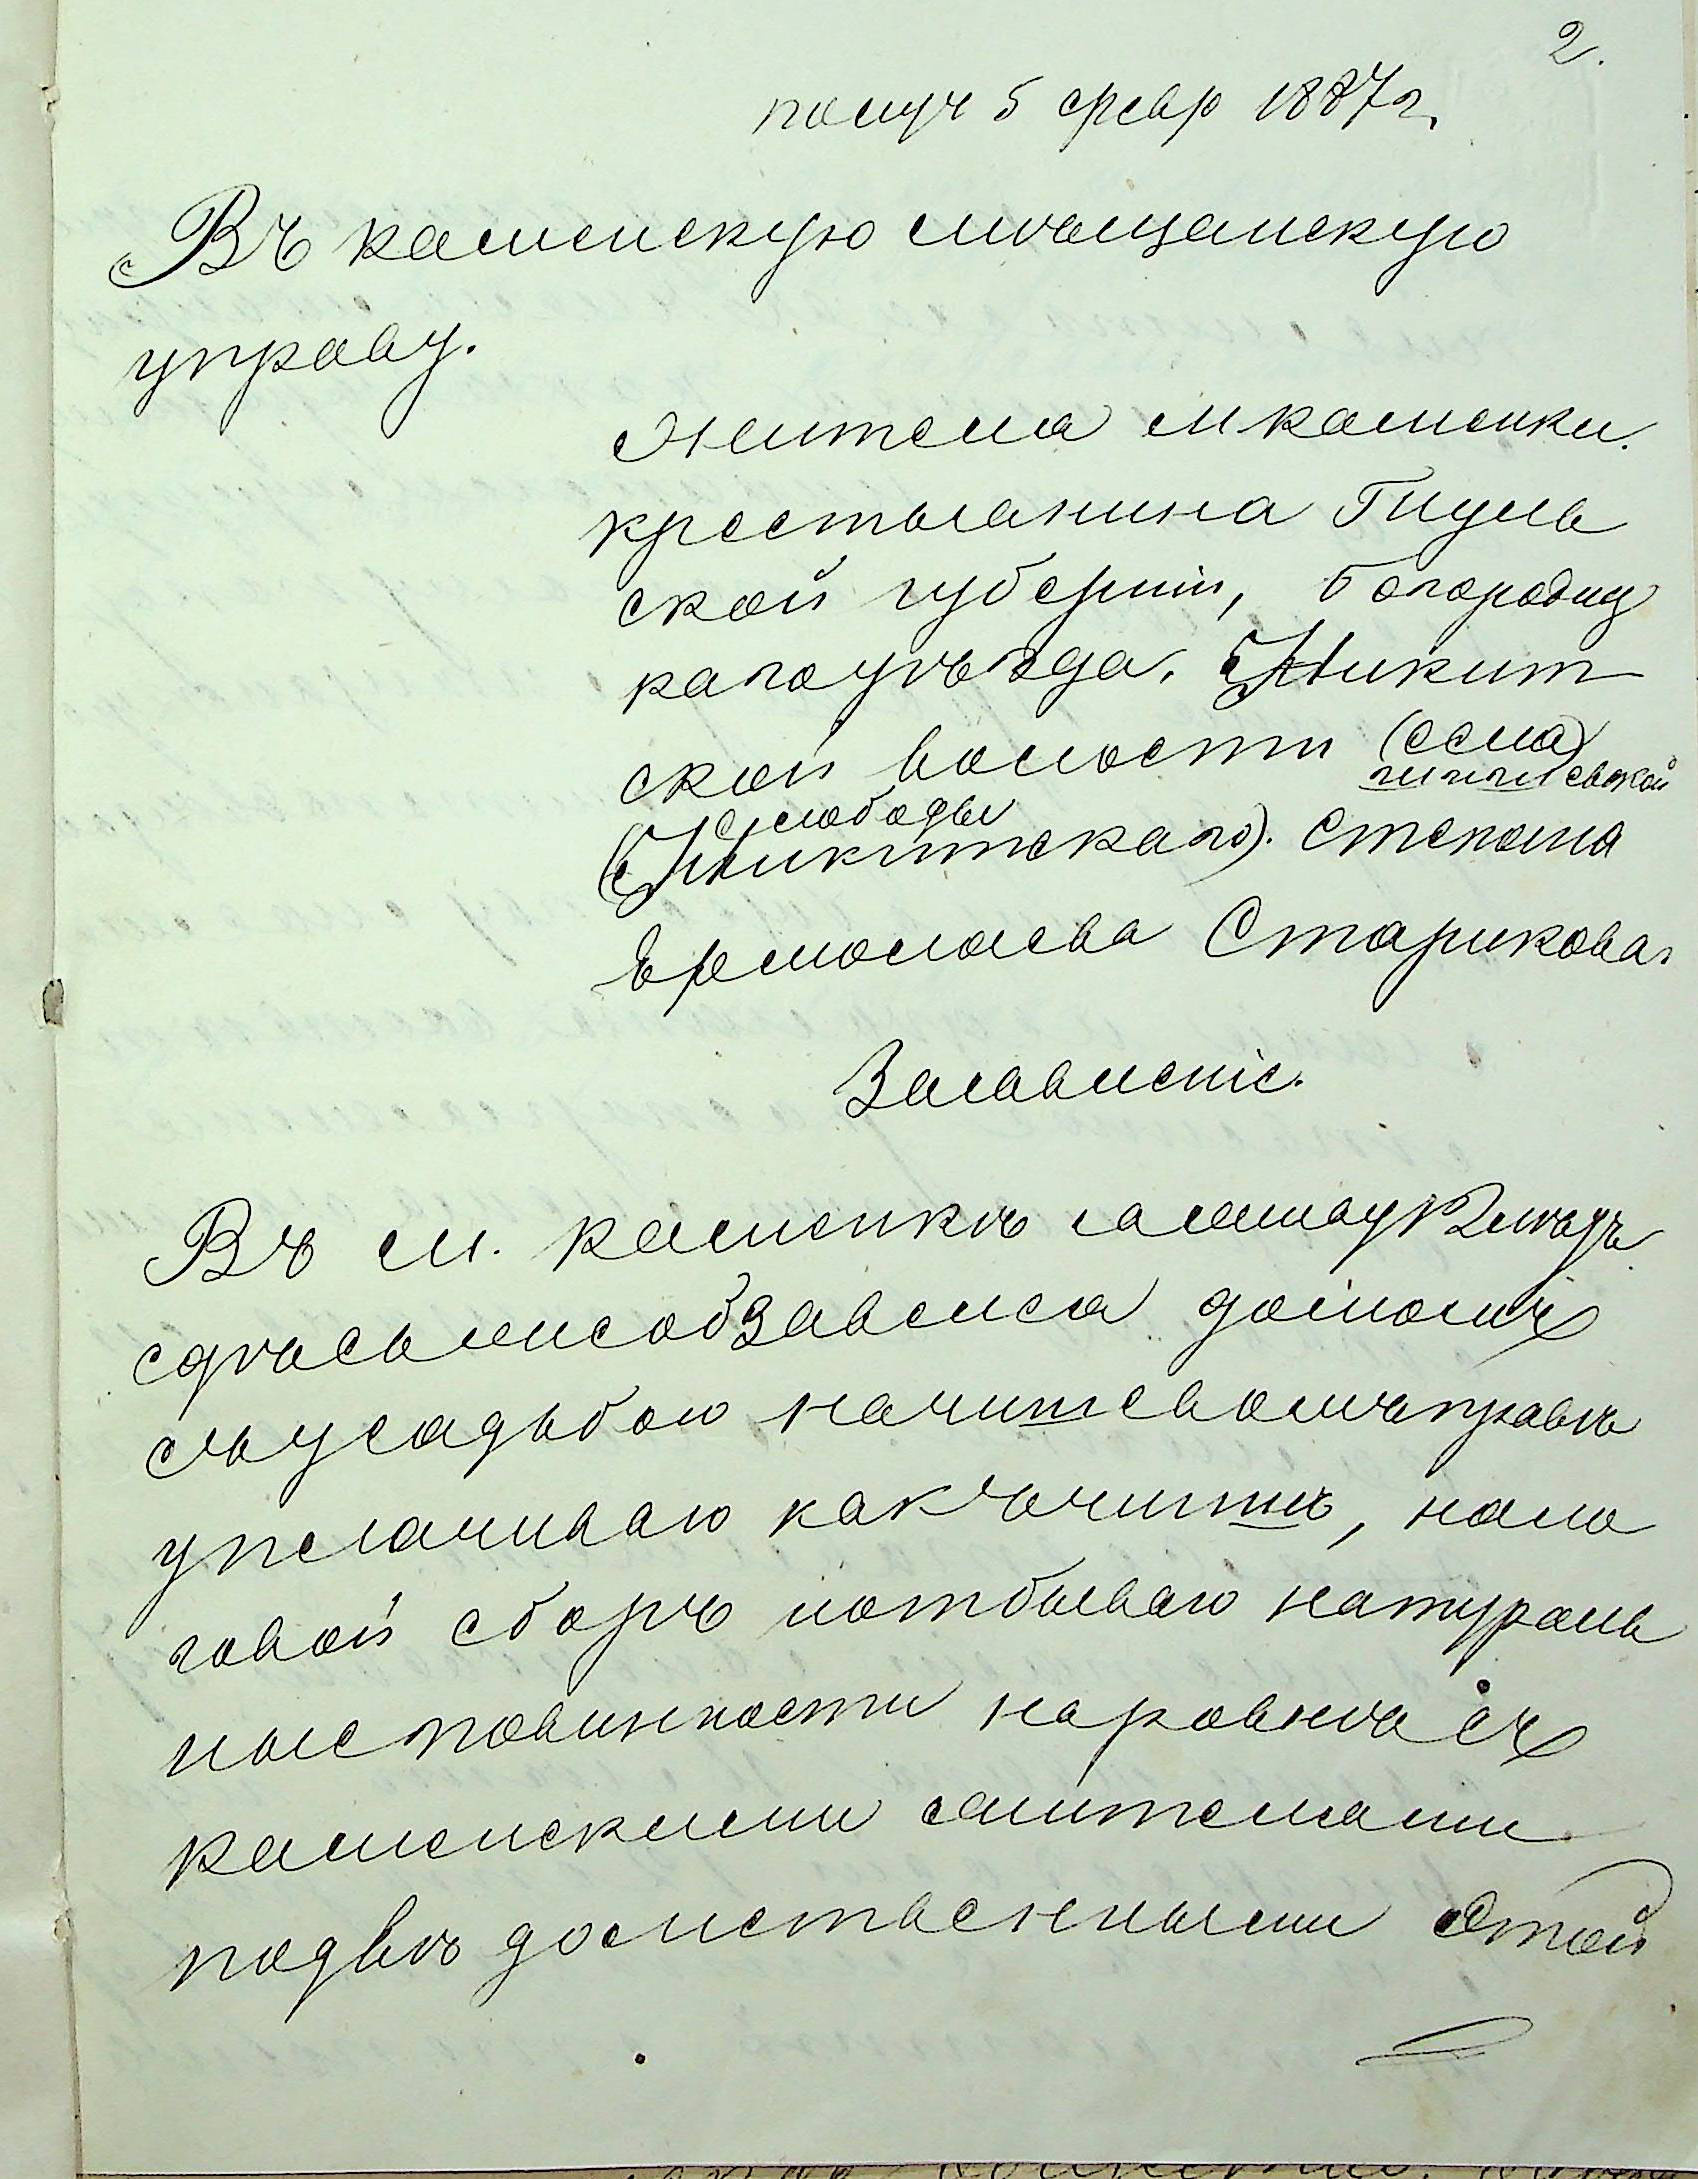 2.
получ 5 февр 1887 г.
Въ каменскую мѣщанскую
управу.
Жителя м Каменки.
крестьянина Туль
ской губерніи, Богородиц
каго уѣзда. Никит
ской волости (села)
слободы
(Никитскаго). Степана
Ермолаева Старикова.
Заявленіе.
Въ м. Каменкѣ я
здѣсь я обзавелся домомъ
съ усадьбою на чиншевомъ правѣ
уплачиваю какъ чиншъ, нало
говой сборъ и отбываю натураль
ные повинности наровнѣ съ
каменскими жителями
подвѣдомственными этой